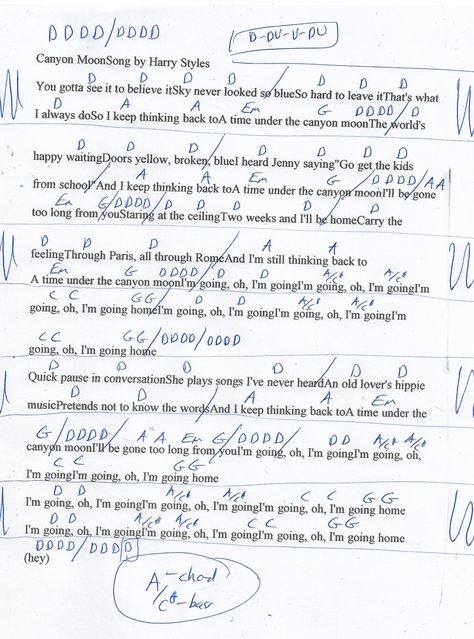 D D D D / D D D D
D-DU-U-DU
Canyon MoonSong by Harry Styles
D D D D D D D
You gotta see it to believe itSky never looked so blueSo hard to leave itThat's what
D A A Em G DDDD/ D
I always doSo I keep thinking back toA time under the canyon moonThe world's
D D D D D D
happy waitingDoors yellow, broken, blueI heard Jenny saying"Go get the kids
D A A Em G / DDDD / AA
from school"And I keep thinking back toA time under the canyon moonI'll be gone
Em G/DDDD/ D D D D
too long from youStaring at the ceilingTwo weeks and I'll be homeCarry the
D D D A A
feelingThrough Paris, all through RomeAnd I'm still thinking back to
Em G DDDD / D D A/C# A/C#
A time under the canyon moonI'm going, oh, I'm goingI'm going, oh, I'm goingI'm
C C GG / D D A/C# A/C#
going, oh, I'm going homeI'm going, oh, I'm goingI'm going, oh, I'm goingI'm
C C GG / DDDD / DDDD
going, oh, I'm going home
D D D D D
Quick pause in conversationShe plays songs I've never heardAn old lover's hippie
D D D A A Em
musicPretends not to know the wordsAnd I keep thinking back toA time under the
G / DDDD / A A Em G / DDDD / D D A/C# A/C#
canyon moonI'll be gone too long from youI'm going, oh, I'm goingI'm going, oh,
C C GG
I'm goingI'm going, oh, I'm going home
D D A/C# A/C# C C GG
I'm going, oh, I'm goingI'm going, oh, I'm goingI'm going, oh, I'm going home
D D A/C# A/C# C C GG
I'm going, oh, I'm goingI'm going, oh, I'm goingI'm going, oh, I'm going home
DDDD / DDDD
(hey)
A - chord
/C# - bass